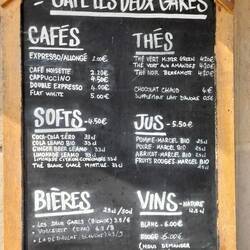 CAFÉ LES DEUX GARES
CAFÉS
EXPRESSO/ALLONGÉ 2.00€
CAFÉ NOISETTE 2.20€
CAPPUCCINO 4.50€
DOUBLE EXPRESSO 4.00€
FLAT WHITE 5.00€
THÉS
THÉ VERT MISTER GREEN 4.20€
THÉ VERT AUX AMANDES 4.20€
THÉ NOIR BERGAMOTE 4.20€
CHOCOLAT CHAUD 4€
SUPPLÉMENT LAIT D'AVOINE 0.50€
SOFTS - 4.50€
COCA-COLA ZÉRO 33cl
COLA LÉAMO BIO 33cl
GINGER BEER LÉAMO 33cl
LIMONADE LÉAMO 33cl
LIMONADE CITRON CONCOMBRE 33cl
THÉ BLANC GLACÉ MARTEAU 33cl
JUS - 5.50€
POMME-MARCEL BIO
POIRE-MARCEL BIO
ABRICOT-MARCEL BIO
FRUITS ROUGES-MARCEL BIO
BIÈRES
25cl / 50cl
LES DEUX GARES (BLONDE)
VINS - NATURE
BLANC - 6.00€
ROUGE - 6.00€
(NOUS DEMANDER